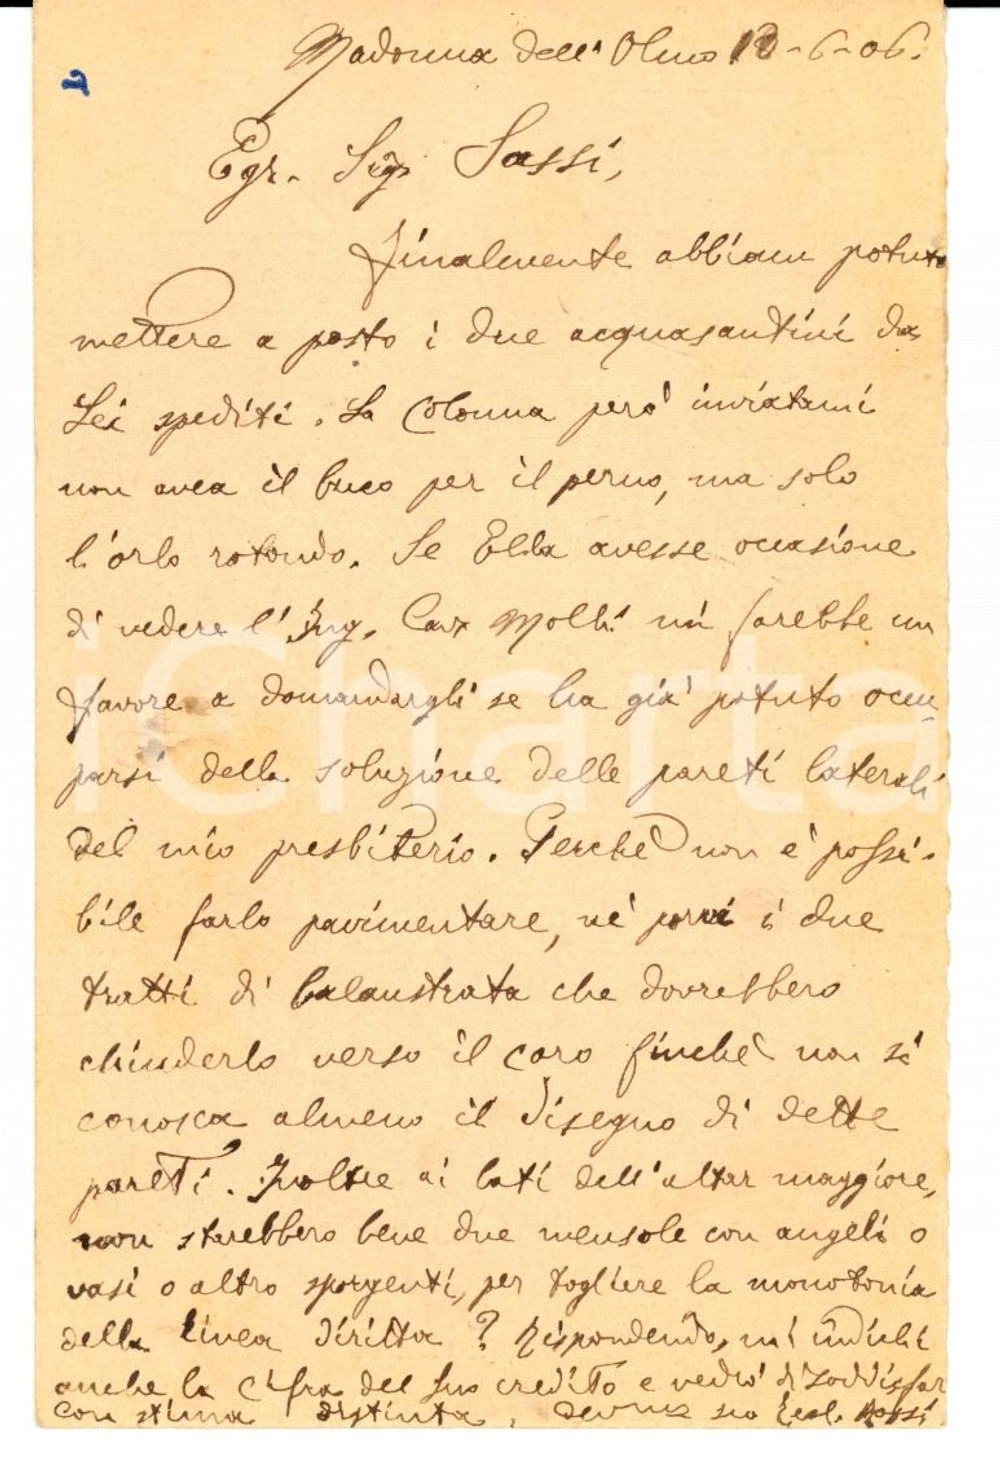 Madonna dell'Olmo 12-6-06.
Egr. Sigr Sassi,
finalmente abbiam potuto
mettere a posto i due acquasantini da
Lei spediti. La colonna però inviatami
non avea il buco per il perno, ma solo
l'orlo rotondo. Se Ella avesse occasione
di vedere l'Ing. Cav Molli mi farebbe un
favore a domandargli se ha già potuto occu-
parsi della soluzione delle pareti laterali
del mio presbiterio. Perchè non è possi-
bile farlo pavimentare, nè porre i due
tratti di balaustrata che dovrebbero
chiuderlo verso il coro finchè non si
conosca almeno il disegno di dette
pareti. Inoltre ai lati dell'altar maggiore,
non starebbero bene due mensole con angeli o
vasi o altro sporgenti, per togliere la monotonia
della linea diritta? Rispondendo, mi indichi
anche la cifra del suo credito e vedrò di soddisfar
con stima distinta, suo Rossi
iCharta